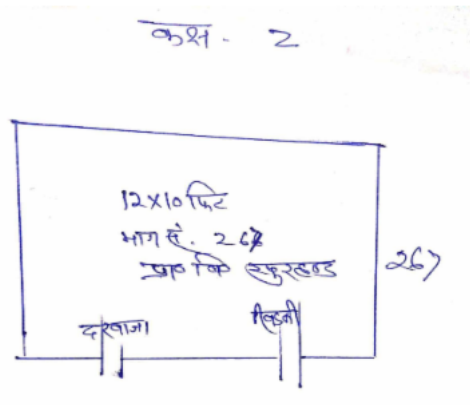 कक्ष - 2
12x10 फिट
भाग सं. 267
प्रा० वि०
267
दरवाजा
खिडकी